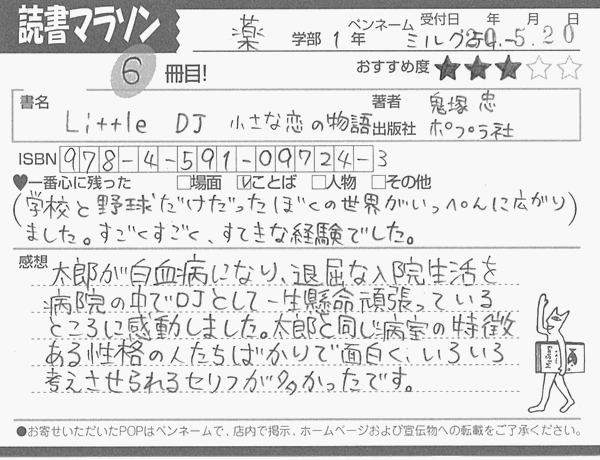 読書マラソン
薬 学部 1 年 ペンネーム 受付日 年 月 日
20.-5.20
6 冊目! おすすめ度 ★★★☆☆
書名 Little DJ 小さな恋の物語
著者 鬼塚 忠
出版社 ポプラ社
ISBN 978-4-591-09724-3
♥一番心に残った □場面 ☑ことば □人物 □その他
(学校と野球だけだったぼくの世界がいっぺんに広がり)
ました。すごくすごく、すてきな経験でした。
感想
太郎が白血病になり、退屈な入院生活を
病院の中でDJとして一生懸命頑張っている
ところに感動しました。太郎と同じ病室の特徴
ある性格の人たちばかりで面白く、いろいろ
考えさせられるセリフが多かったです。
●お寄せいただいたPOPはペンネームで、店内で掲示、ホームページおよび宣伝物への転載をご了承ください。